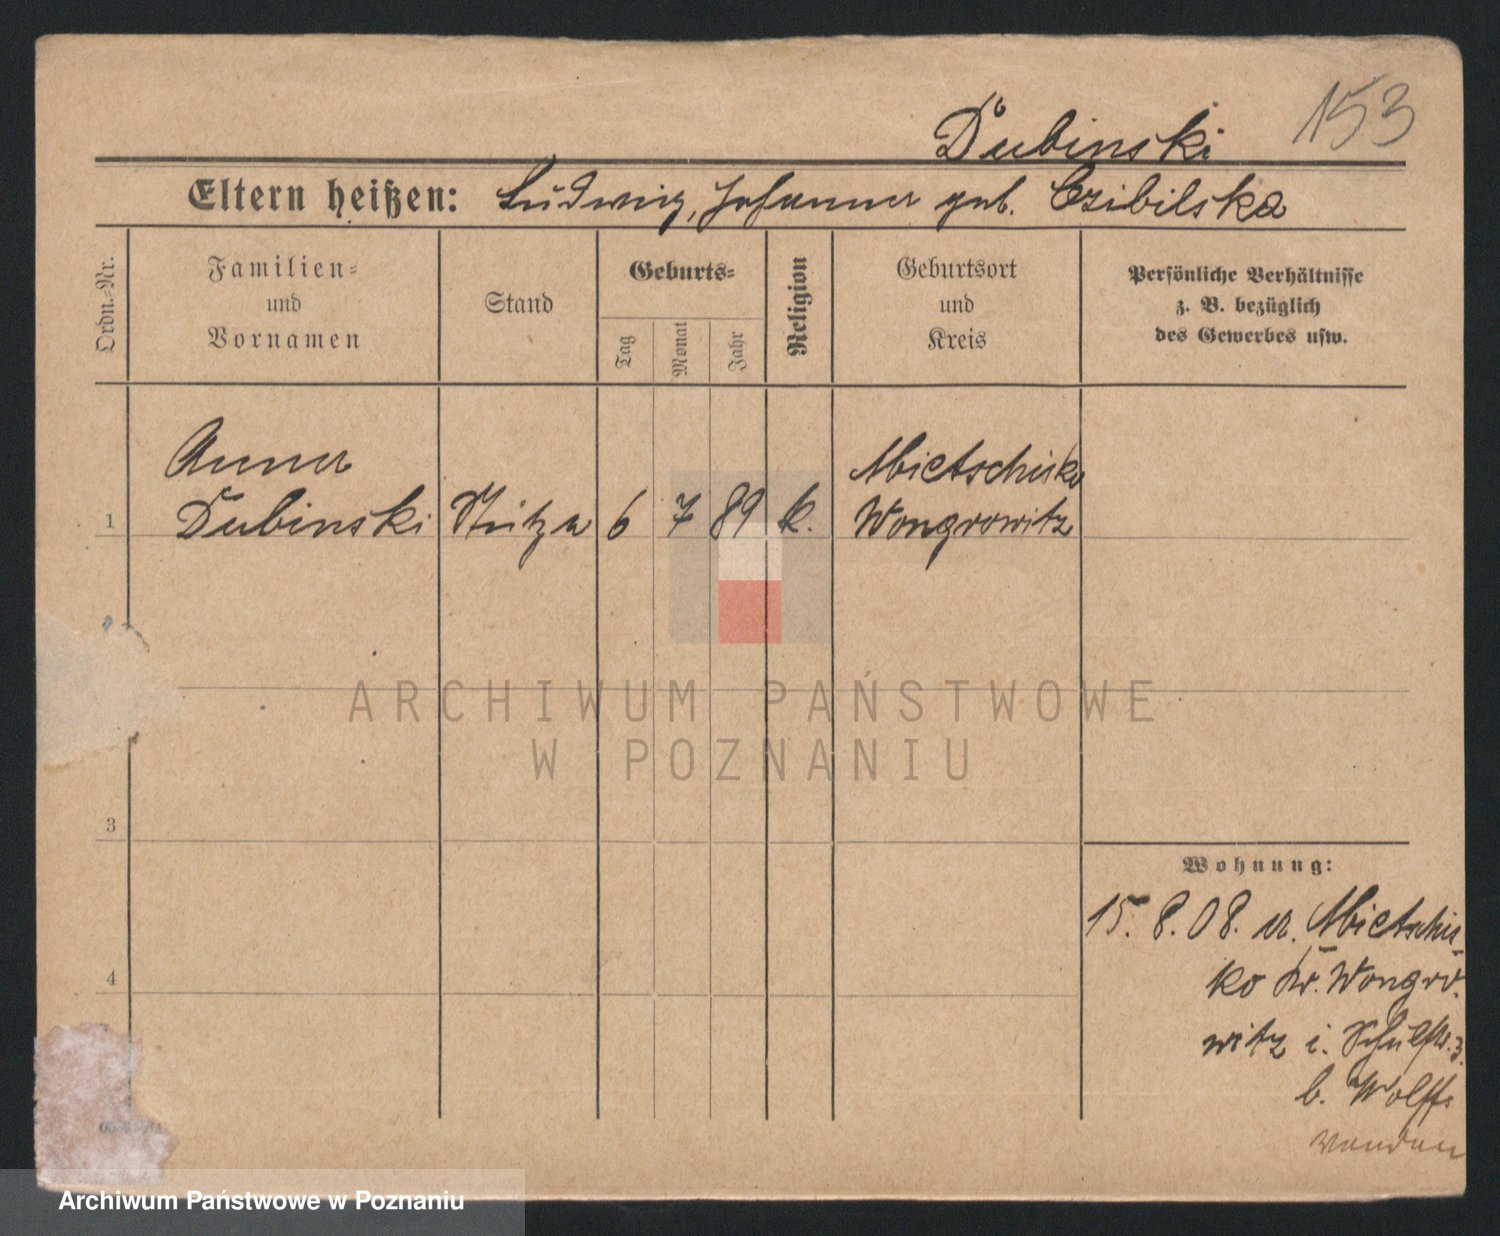 153
Dubinski
Eltern heißen: Ludwig, Johanna geb. Czibilska
Ordn.-Nr.
Familien-
und
Vornamen
Stand
Geburts-
Tag
Monat
Jahr
Religion
Geburtsort
und
Kreis
Persönliche Verhältnisse
z. B. bezüglich
des Gewerbes usw.
Anna
Mietschisko
1 Dubinski Stütze 6 7 89 k. Wongrowitz
ARCHIWUM PAŃSTWOWE
W POZNANIU
3
Wohnung:
15. 8. 08. v. Mietschis-
4
ko Kr. Wongro-
witz i. Schulstr. 3.
b. Wolff.
wenden
Archiwum Państwowe w Poznaniu